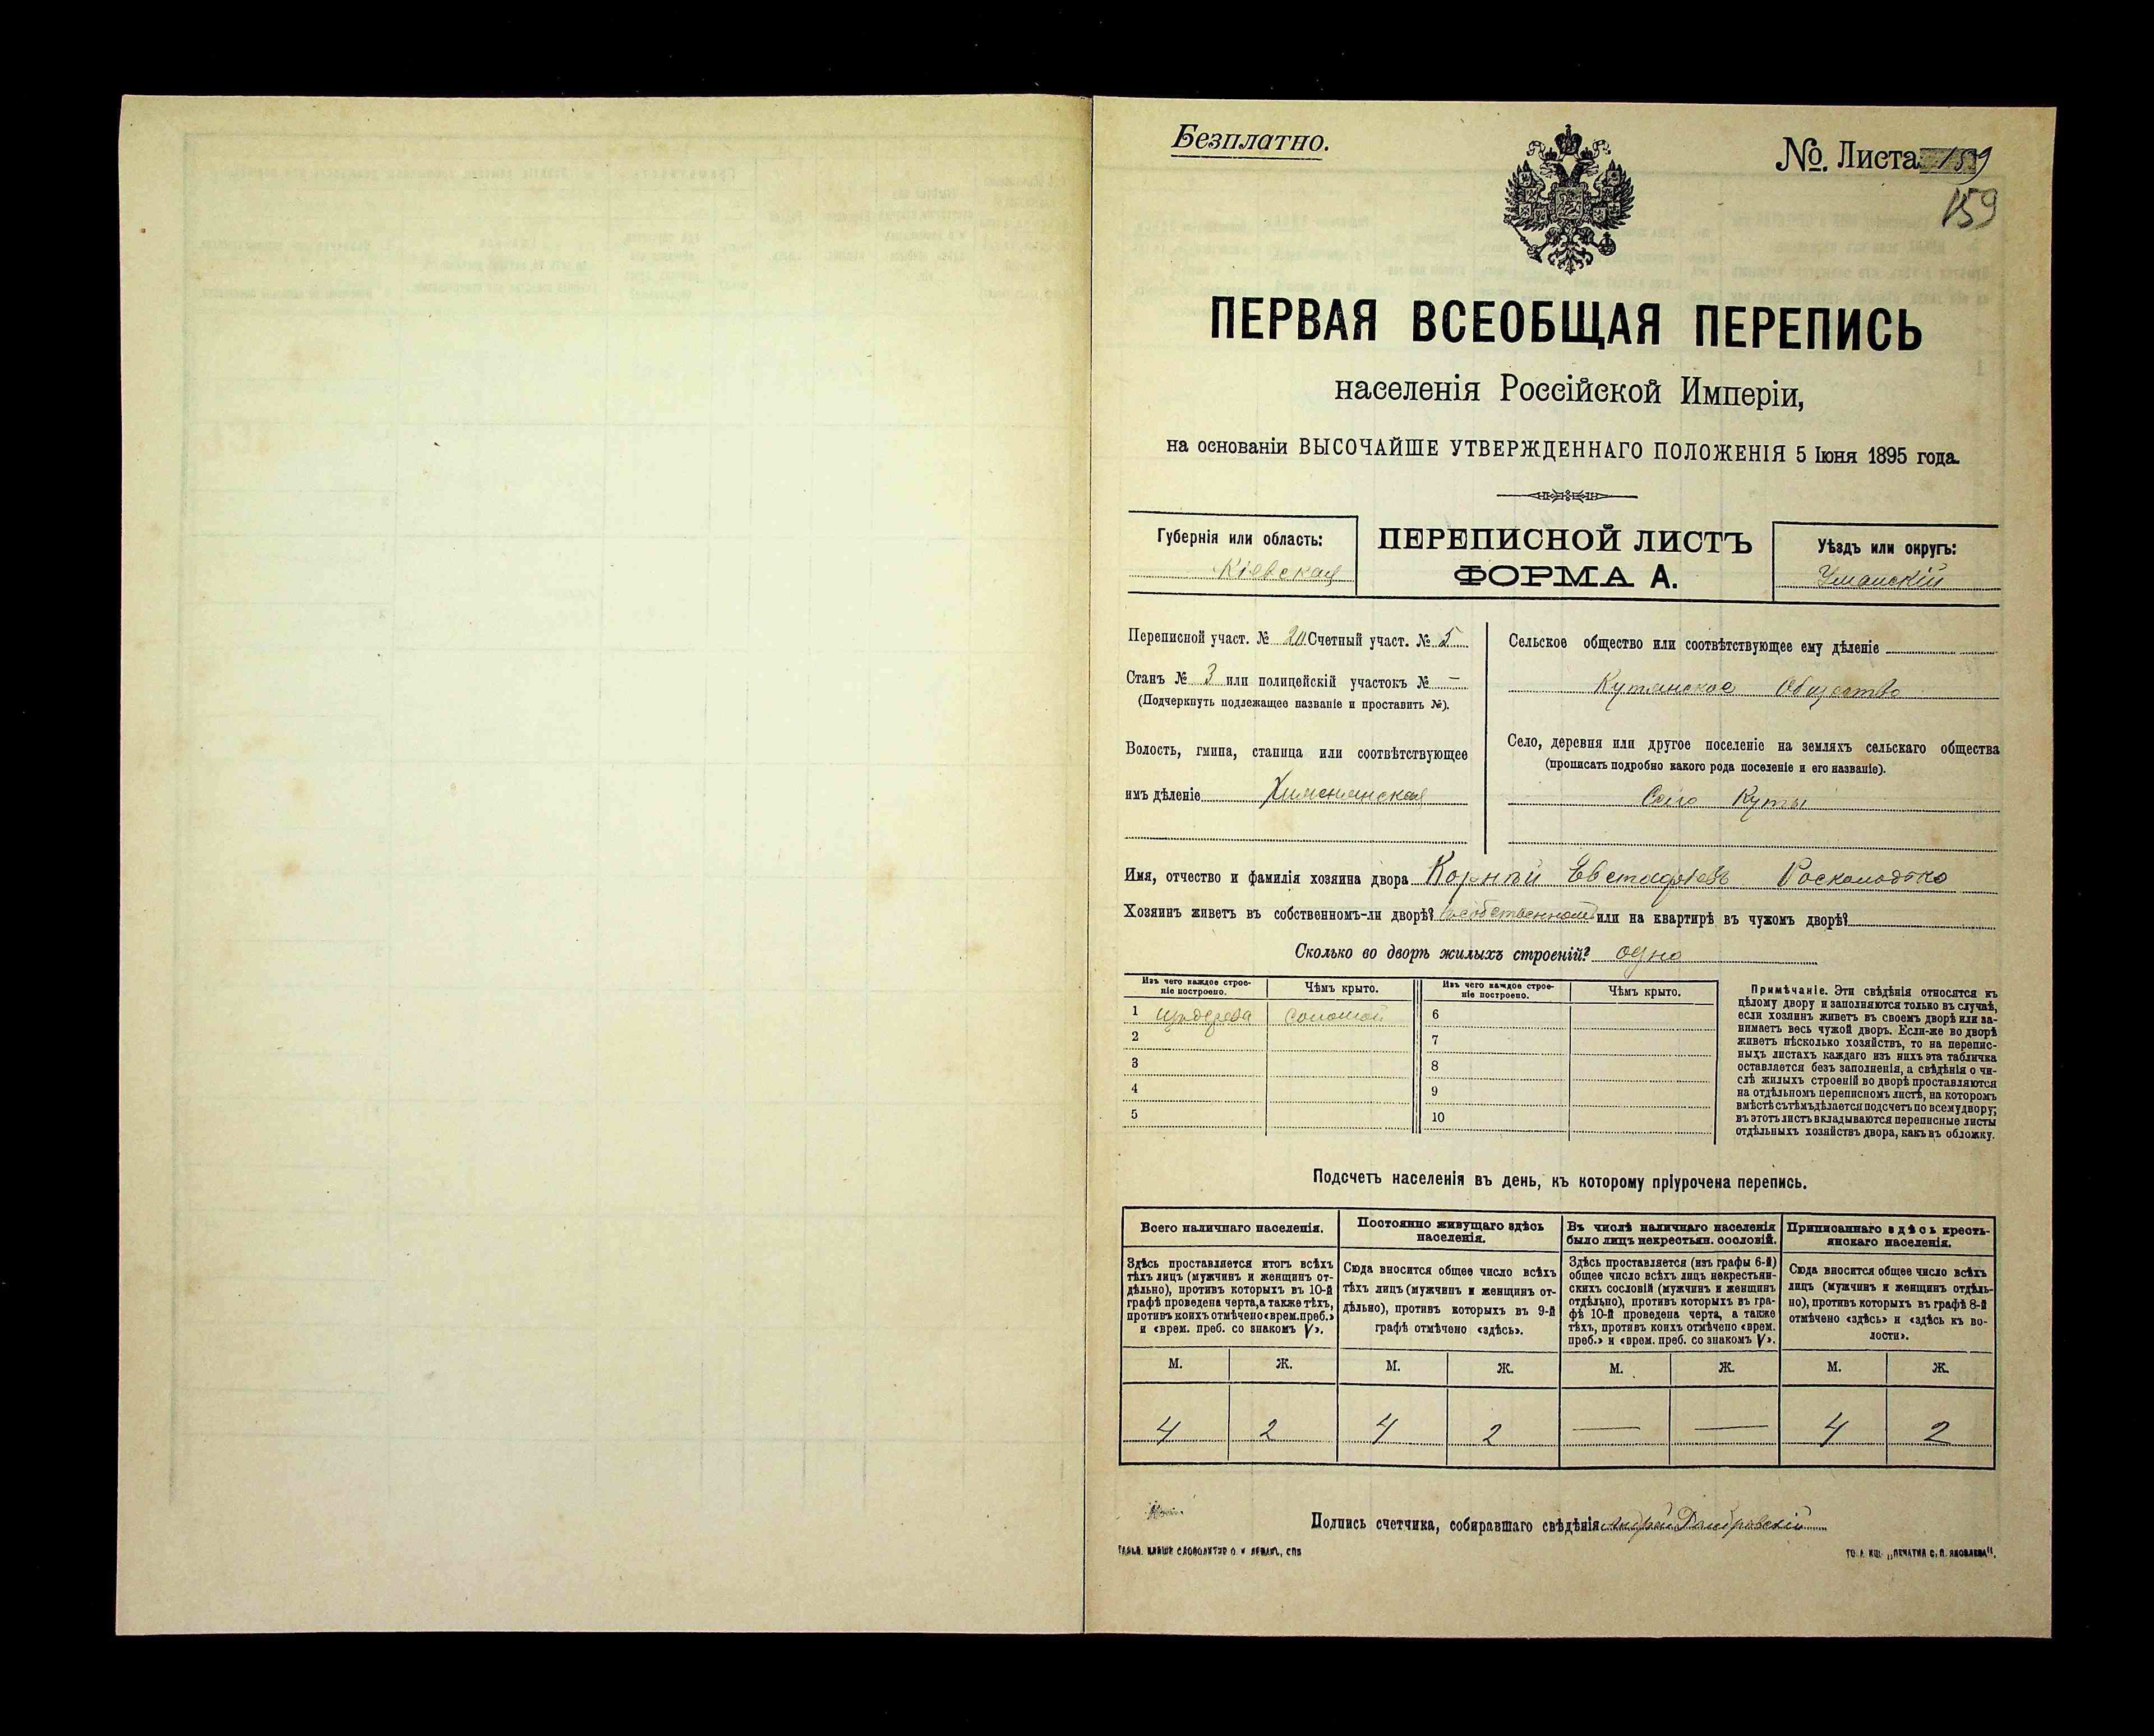 Безплатно.
№. Листа 159
159
ПЕРВАЯ ВСЕОБЩАЯ ПЕРЕПИСЬ
населенія Россійской Имперіи,
на основаніи ВЫСОЧАЙШЕ УТВЕРЖДЕННАГО ПОЛОЖЕНІЯ 5 Іюня 1895 года.
Губернія или область:
Кіевская
ПЕРЕПИСНОЙ ЛИСТЪ
ФОРМА А.
Уѣздъ или округъ:
Уманскій
Переписной участ. № 20 Счетный участ. № 5
Станъ № 3 или полицейскій участокъ № —
(Подчеркнуть подлежащее названіе и проставить №).
Волость, гмина, станица или соотвѣтствующее
имъ дѣленіе
Сельское общество или соотвѣтствующее ему дѣленіе
Кутянское Общество
Село, деревня или другое поселеніе на земляхъ сельскаго общества
(прописать подробно какого рода поселеніе и его названіе).
Село Куты
Имя, отчество и фамилія хозяина двора Корній Евстафіевъ
Хозяинъ живетъ въ собственномъ-ли дворѣ? въ собственномъ или на квартирѣ въ чужомъ дворѣ?
Сколько во дворѣ жилыхъ строеній? одно
Изъ чего каждое строе-
ніе построено.
Чѣмъ крыто.
Изъ чего каждое строе-
ніе построено.
Чѣмъ крыто.
1 изъ дерева соломой 6
2 7
3 8
4 9
5 10
Примѣчаніе. Эти свѣдѣнія относятся къ
цѣлому двору и заполняются только въ случаѣ,
если хозяинъ живетъ въ своемъ дворѣ или за-
нимаетъ весь чужой дворъ. Если-же во дворѣ
живетъ нѣсколько хозяйствъ, то на перепис-
ныхъ листахъ каждаго изъ нихъ эта табличка
оставляется безъ заполненія, а свѣдѣнія о чи-
слѣ жилыхъ строеній во дворѣ проставляются
на отдѣльномъ переписномъ листѣ, на которомъ
вмѣстѣ съ тѣмъ дѣлается подсчетъ по всему двору;
въ этотъ листъ вкладываются переписные листы
отдѣльныхъ хозяйствъ двора, какъ въ обложку.
Подсчетъ населенія въ день, къ которому пріурочена перепись.
Всего наличнаго населенія.
Здѣсь проставляется итогъ всѣхъ
тѣхъ лицъ (мужчинъ и женщинъ от-
дѣльно), противъ которыхъ въ 10-й
графѣ проведена черта, а также тѣхъ,
противъ коихъ отмѣчено «врем. преб.»
и «врем. преб. со знакомъ V».
Постоянно живущаго здѣсь
населенія.
Сюда вносится общее число всѣхъ
тѣхъ лицъ (мужчинъ и женщинъ от-
дѣльно), противъ которыхъ въ 9-й
графѣ отмѣчено «здѣсь».
Въ числѣ наличнаго населенія
было лицъ некрестьян. сословій.
Здѣсь проставляется (изъ графы 6-й)
общее число всѣхъ лицъ некрестьян-
скихъ сословій (мужчинъ и женщинъ
отдѣльно), противъ которыхъ въ гра-
фѣ 10-й проведена черта, а также
тѣхъ, противъ коихъ отмѣчено «врем.
преб.» и «врем. преб. со знакомъ V».
Приписаннаго здѣсь кресть-
янскаго населенія.
Сюда вносится общее число всѣхъ
лицъ (мужчинъ и женщинъ отдѣль-
но), противъ которыхъ въ графѣ 8-й
отмѣчено «здѣсь» и «здѣсь къ во-
лости».
М. Ж. М. Ж. М. Ж. М. Ж.
4 2 4 2 — — 4 2
Подпись счетчика, собиравшаго свѣдѣнія Андрей Домбровскій